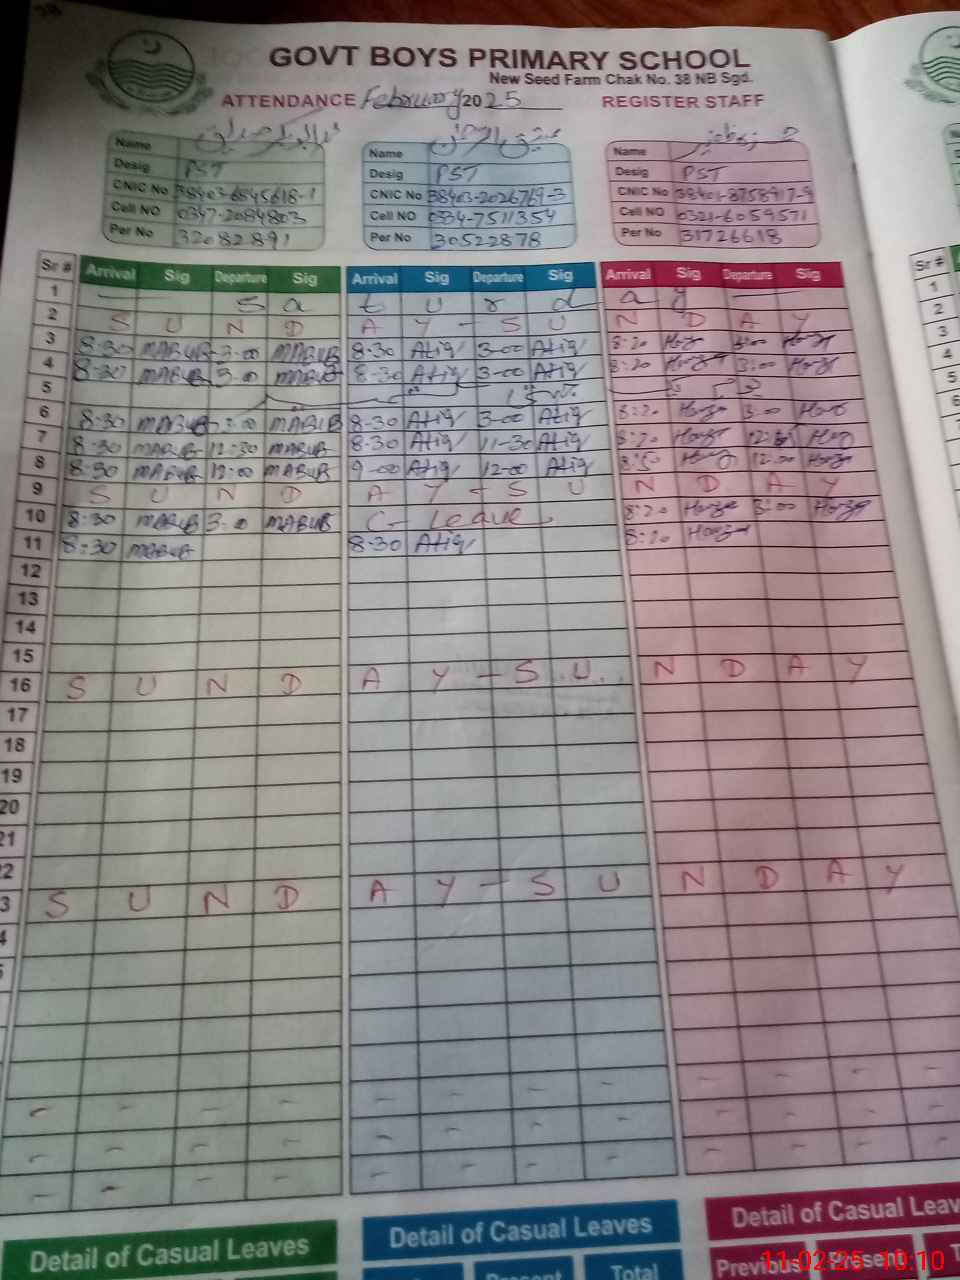 GOVT BOYS PRIMARY SCHOOL
New Seed Farm Chak No. 38 NB Sgd.
ATTENDANCE February 2025 REGISTER STAFF
Name Name Name
Desig PST Desig PST Desig PST
CNIC No 38403-6545618-1 CNIC No 38403-2026769-3 CNIC No 38401-8758917-9
Cell NO 0347-2084803 Cell NO 0334-7511354 Cell NO 0321-6059571
Per No 32082891 Per No 30522878 Per No 31726618
Sr # Arrival Sig Departure Sig Arrival Sig Departure Sig Arrival Sig Departure Sig Sr #
1 — S a t u r d a y — 1
2 S U N D A Y - S U N D A Y 2
3 8-30 MABUB 3-00 MABUB 8-30 Atiq 3-00 Atiq 8:20 3:00 3
4 8-30 MABUB 3.00 MABUB 8-30 Atiq 3-00 Atiq 8:20 3:00 4
5 5
6 8-30 MABUB MABUB 8-30 Atiq 3-00 Atiq 8:20 3:00 6
7 8-30 MABUB 12:30 MABUB 8-30 Atiq 11-30 Atiq 8:20
8 8-30 MABUB 12:00 MABUB 9-00 Atiq 12-00 Atiq 12:00
9 S U N D A Y - S U N D A Y
10 8-30 MABUB 3-00 MABUB C- Leave 8:20 3:00
11 8-30 MABUB 8-30 Atiq 8:20
12
13
14
15
16 S U N D A Y - S U N D A Y
17
18
19
20
21
2
3 S U N D A Y - S U N D A Y
4
5
Detail of Casual Leaves Detail of Casual Leaves Detail of Casual Leav
Present Total Previous Present T
11-02-25 10:10